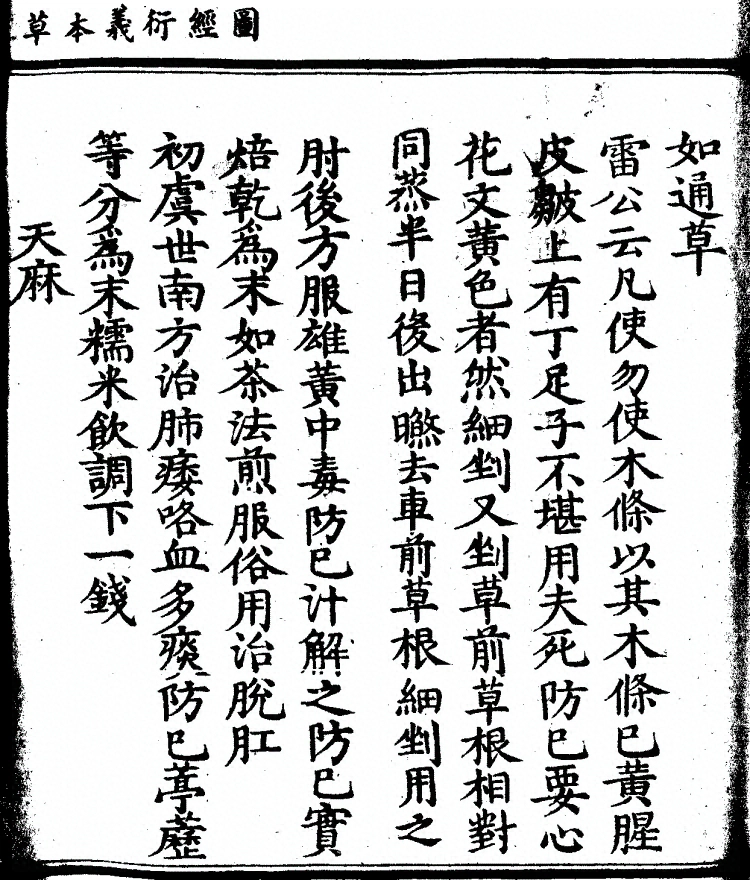 圖經衍義本草
如通草
雷公云凡使勿使木條以其木條巳黃腥
皮皺上有丁足子不堪用夫死防巳要心
花文黃色者然細剉又剉草前草根相對
同蒸半日後出㬠去車前草根細剉用之
肘後方服雄黃中毒防巳汁解之防巳實
焙乾為末如茶法煎服俗用治脫肛
初虞世南方治肺痿咯血多痰防巳葶藶
等分為末糯米飲調下一錢
天麻